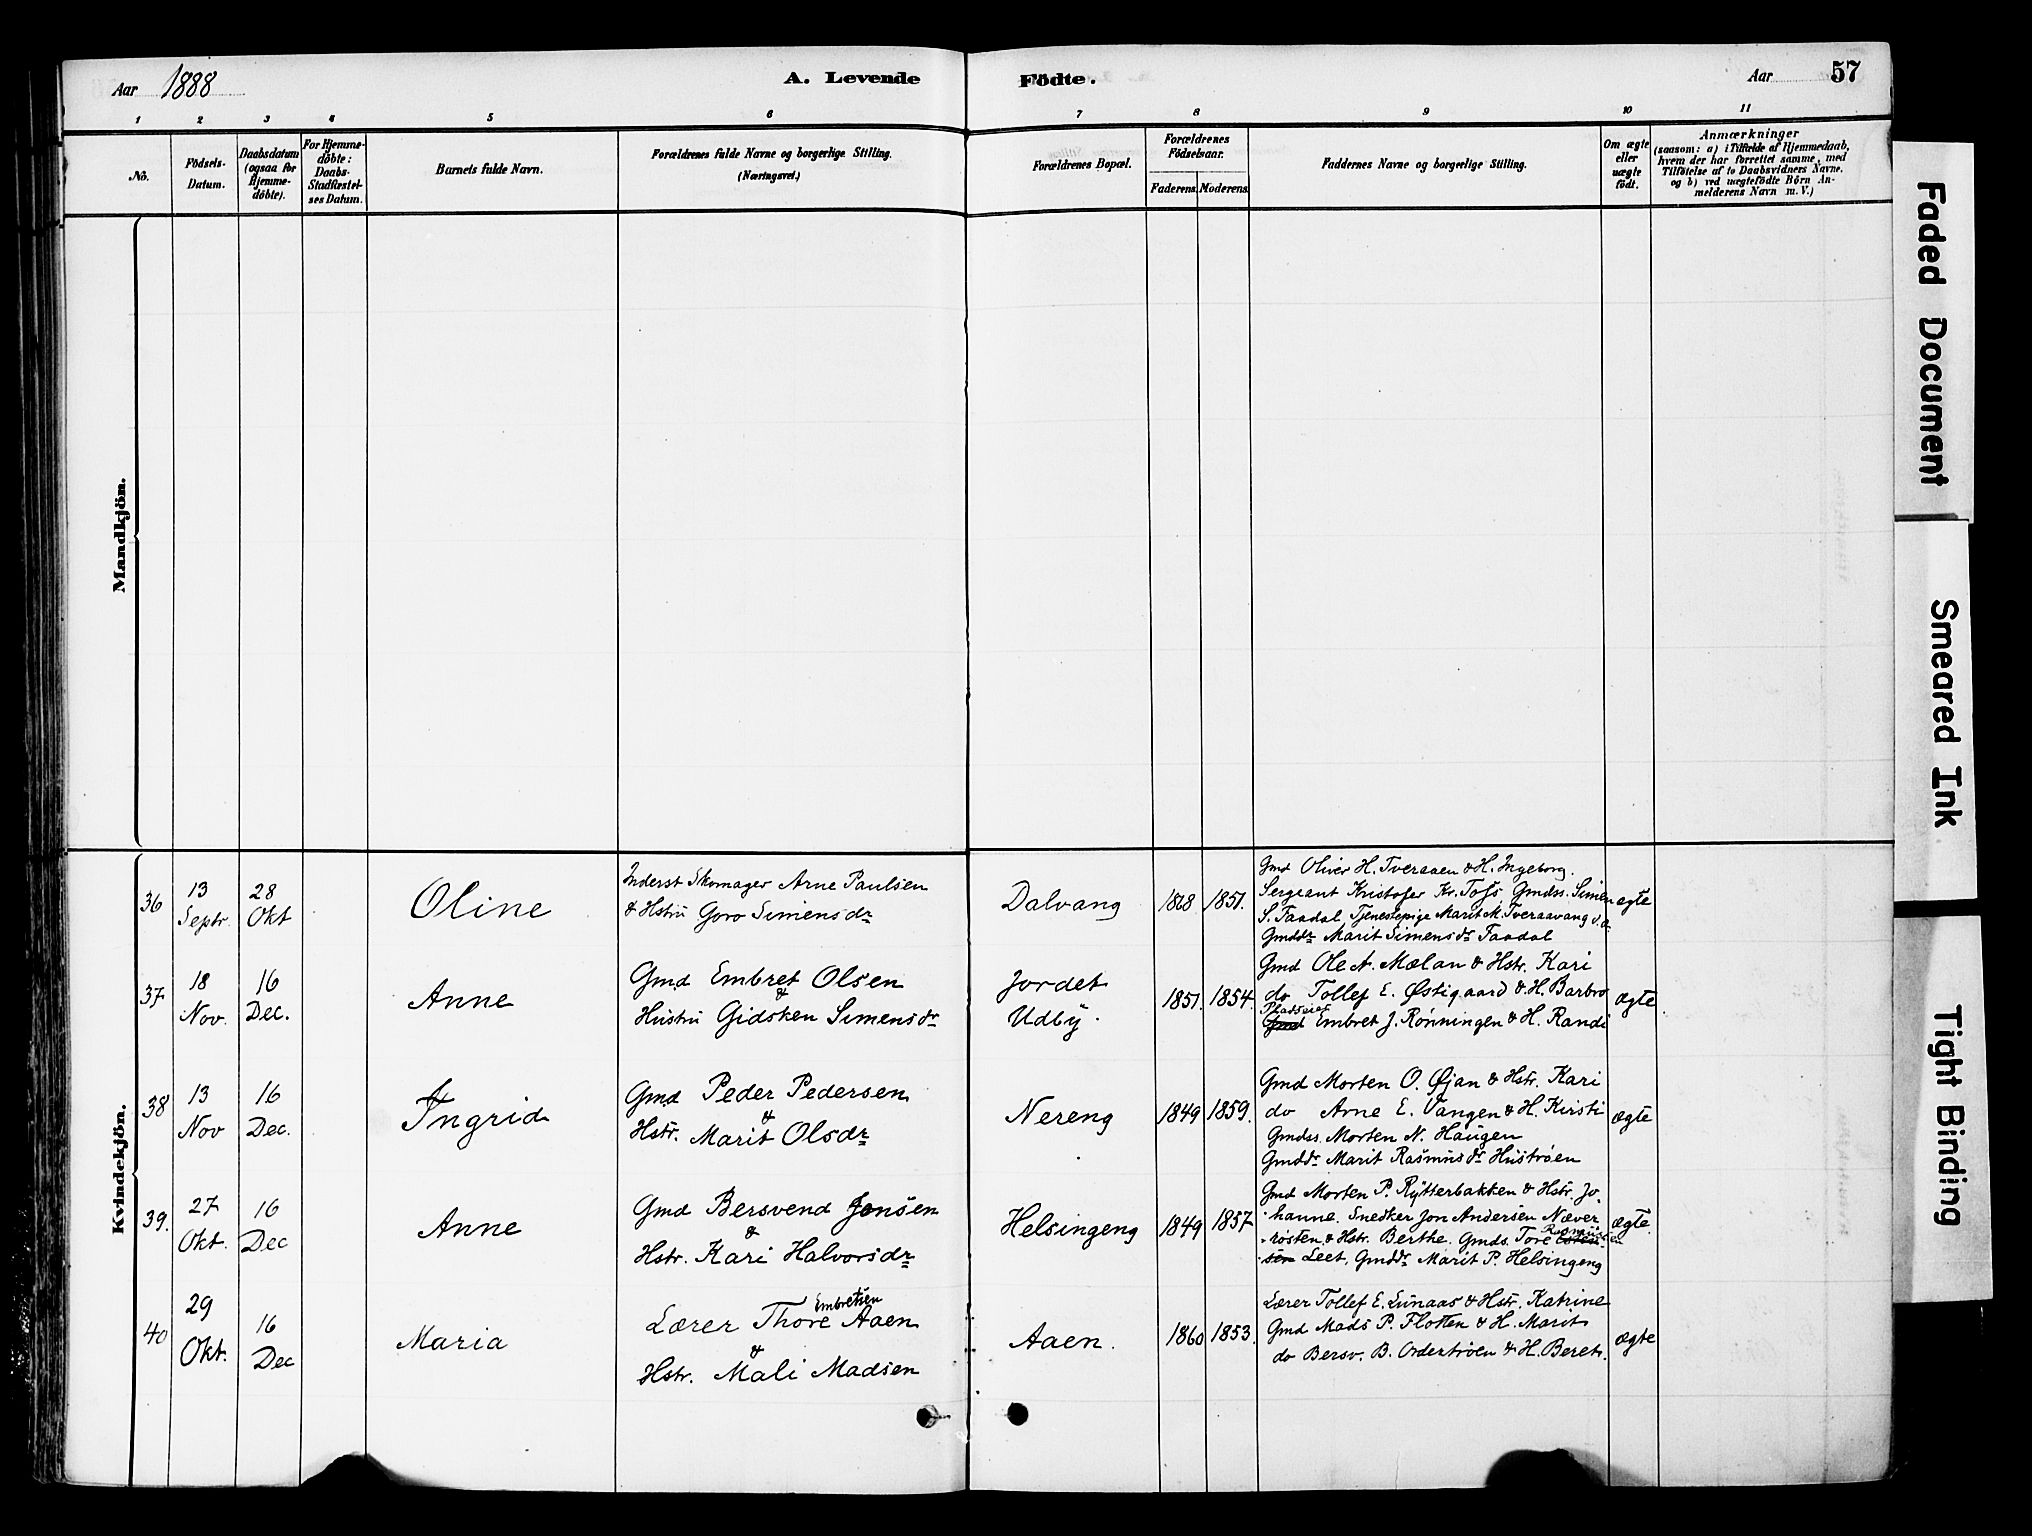 Aar 1888 A. Levende Födte. Aar 57
1 2 3 4 5 6 7 8 9 10 11
No.
Födsels-
Datum.
Daabsdatum
(ogsaa for
Hjemme-
döbte).
For Hjemme-
döbte:
Daabs-
Stadfæstel-
ses Datum.
Barnets fulde Navn.
Forældrenes fulde Navne og borgerlige Stilling.
(Næringsvei.)
Forældrenes Bopæl.
Forældrenes
Födselsaar.
Faderens. Moderens.
Faddernes Navne og borgerlige Stilling.
Om ægte
eller
uægte
födt.
Anmærkninger
(saasom: a) i Tilfælde af Hjemmedaab,
hvem der har forrettet samme, med
Tilföielse af to Daabsvidners Navne,
og b) ved uægtefödte Börn An-
melderens Navn m. V.)
Mandkjön.
Kvindekjön.
36
13
Septr.
28
Okt
Oline
Inderst Skomager Arne Paulsen
& Hstru Goro Simensdr
Dalvang
1868
1851.
Gmd Oliver H. Tveraaen & H. Ingeborg.
Sergeant Kristofer Kr. Gmdss. Simen
S. Faadal Tjenestepige Marit M. Tveraavang
Gmddr Marit Simensdr Faadal
ægte
37
18
Nov.
16
Dec.
Anne
Gmd Embret Olsen
&
Hustru Gidsken Simensdr
Jordet
Udby.
1851.
1854.
Gmd Ole A. Mælan & Hstr. Kari
do Tollef E. Østigaard & H. Barbro
Pladseier
Gmd Embret J. Rønningen & H. Randi
ægte
38
13
Nov
16
Dec.
Ingrid
Gmd Peder Pedersen
&
Hstr. Marit Olsdr
Nereng
1849
1859.
Gmd Morten O. Øjan & Hstr. Kari
do Arne E. Vangen & H. Kirsti
Gmdss. Morten N. Haugen
Gmddr Marit Rasmusdr Hustrøen
ægte
39.
27
Okt.
16
Dec
Anne
Gmd Bersvend Jonsen
&
Hstr. Kari Halvorsdr
Helsingeng
1849
1857
Gmd Morten P. Rytterbakken & Hstr. Jo-
hanne. Snedker Jon Andersen Næver-
røsten & Hstr. Berthe. Gmds. Tore
Leet, Gmddr Marit P. Helsingeng
ægte.
40
29
Okt.
16
Dec
Maria
Embretsen
Lærer Thore Aaen
&
Hstr. Mali Madsen
Aaen.
1860
1853.
Lærer Tollef E. Lunaas & Hstr. Katrine
Gmd Mads P. Flotten & H. Marit
do Bersv. B. Ordertrøen & H. Beret.
ægte
Faded Document
Smeared Ink
Tight Binding